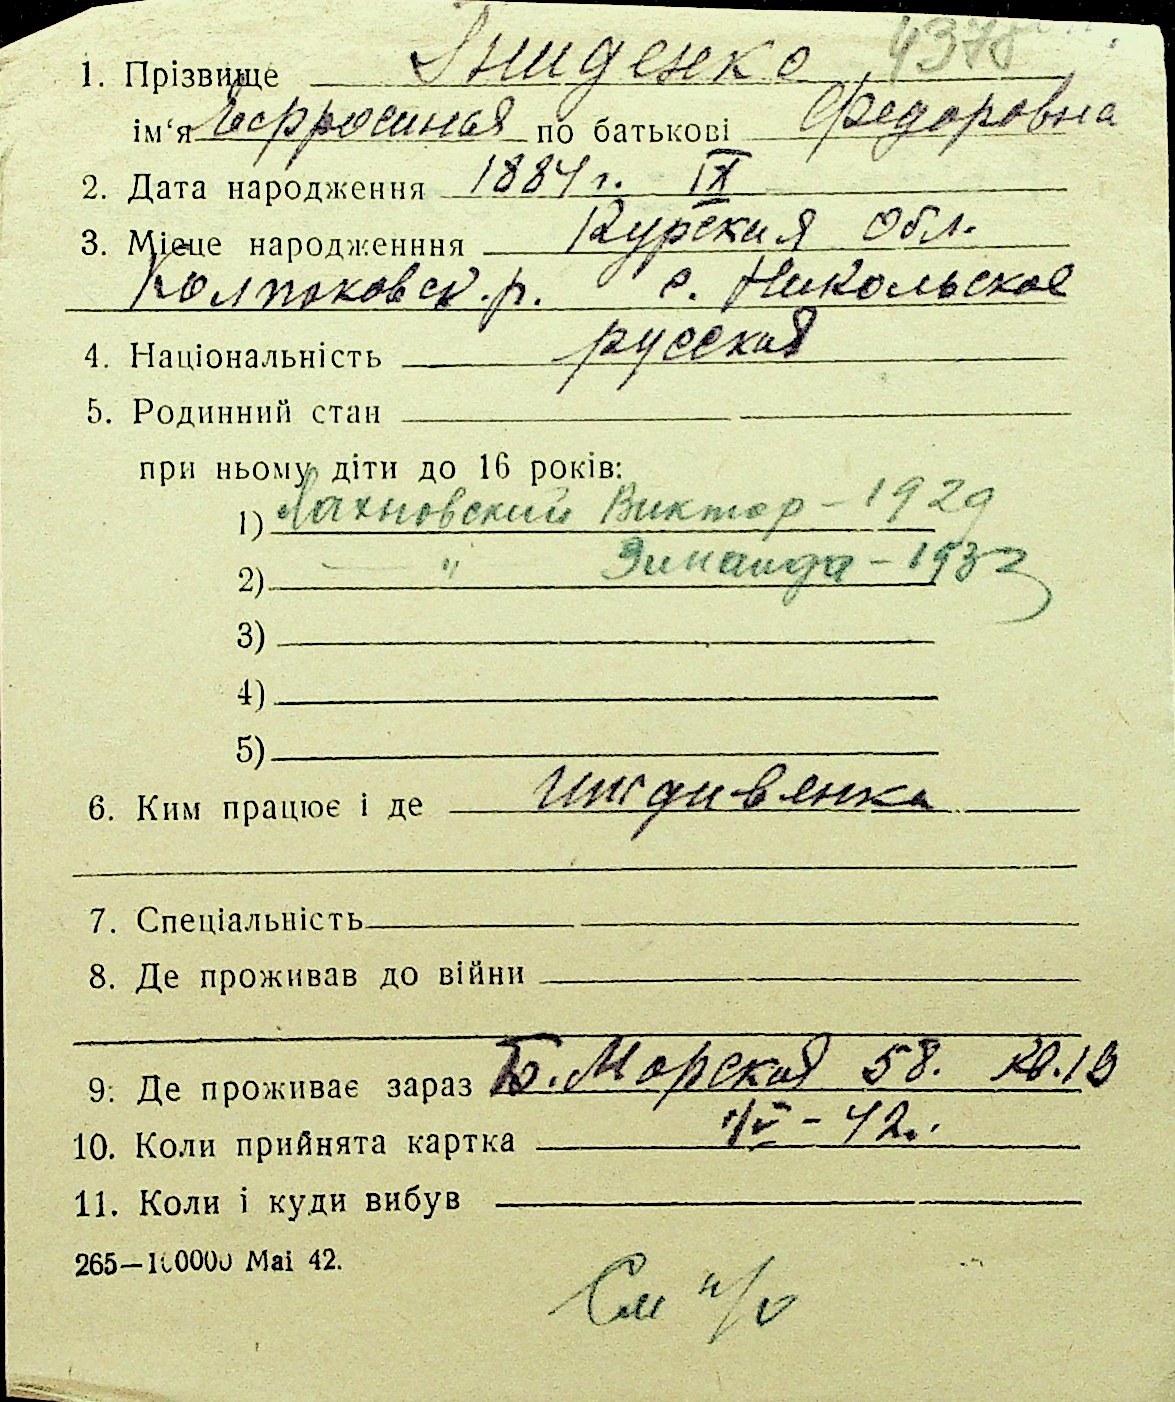 4375
1. Прізвище Гниденко
ім‘я Ефросиния по батькові Федоровна
2. Дата народження 1884 г. IX
3. Місце народженння Курская обл.
Колпаковск. р. с. Никольское
4. Національність русская
5. Родинний стан
при ньому діти до 16 років:
1) Лахновский Виктор – 1929
2) — " Зинаида – 1932
3)
4)
5)
6. Ким працює і де иждивенка
7. Спеціальність
8. Де проживав до війни
9. Де проживає зараз Б. Морская 58.
10. Коли прийнята картка – 42.
11. Коли і куди вибув
265—100000 Mai 42.
См